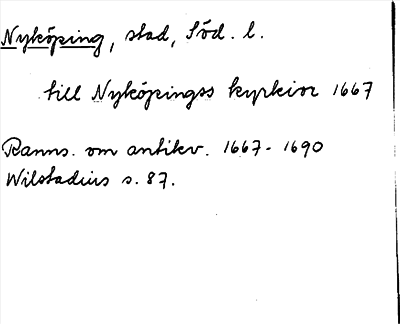 Nyköping, stad, Söd. l.
till Nyköpingss kyrkior 1667
Ranns. om antikv. 1667-1690
Wilstadius s. 87.